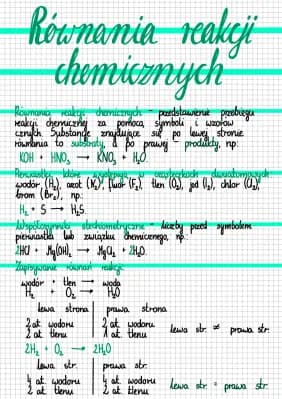 Równania reakcji
chemicznych
Równania reakcji chemicznych - przedstawienie przebiegu
reakcji chemicznej za pomocą symboli i wzorów
cznych. Substancje znajdujące się po lewej stronie
równania to substraty, a po prawej - produkty, np.:
KOH + HNO₃ → KNO₃ + H₂O.
Pierwiastki, które występują w cząsteczkach dwuatomowych:
wodór (H₂), azot (N₂), fluor (F₂), tlen (O₂), jod (I₂), chlor (Cl₂),
brom (Br₂), np.:
H₂ + S → H₂S.
Współczynniki stechiometryczne - liczby przed symbolem
pierwiastka lub związku chemicznego, np.:
2HCl + Mg(OH)₂ → MgCl₂ + 2H₂O.
Zapisywanie równań reakcji:
wodór + tlen → woda
H₂ + O₂ → H₂O
lewa strona | prawa strona
2 at. wodoru | 2 at. wodoru
2 at. tlenu | 1 at. tlenu
lewa str. ≠ prawa str.
2H₂ + O₂ → 2H₂O
lewa str. | prawa str.
4 at. wodoru | 4 at. wodoru
2 at. tlenu | 2 at. tlenu
lewa str. = prawa str.